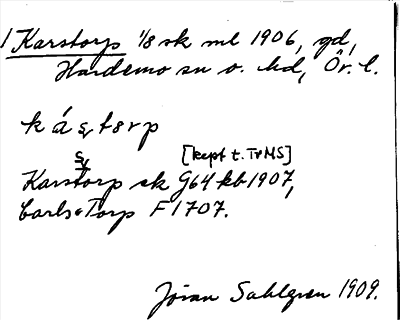 1 Karstorp 1/8 sk ml 1906, gd,
Hardemo sn o. hd, Ör. l.
kástorp
s
[kept t. TrMS]
Karstorp sk G64 kb 1907,
Carls Torp F 1707.
Jöran Sahlgren 1909.